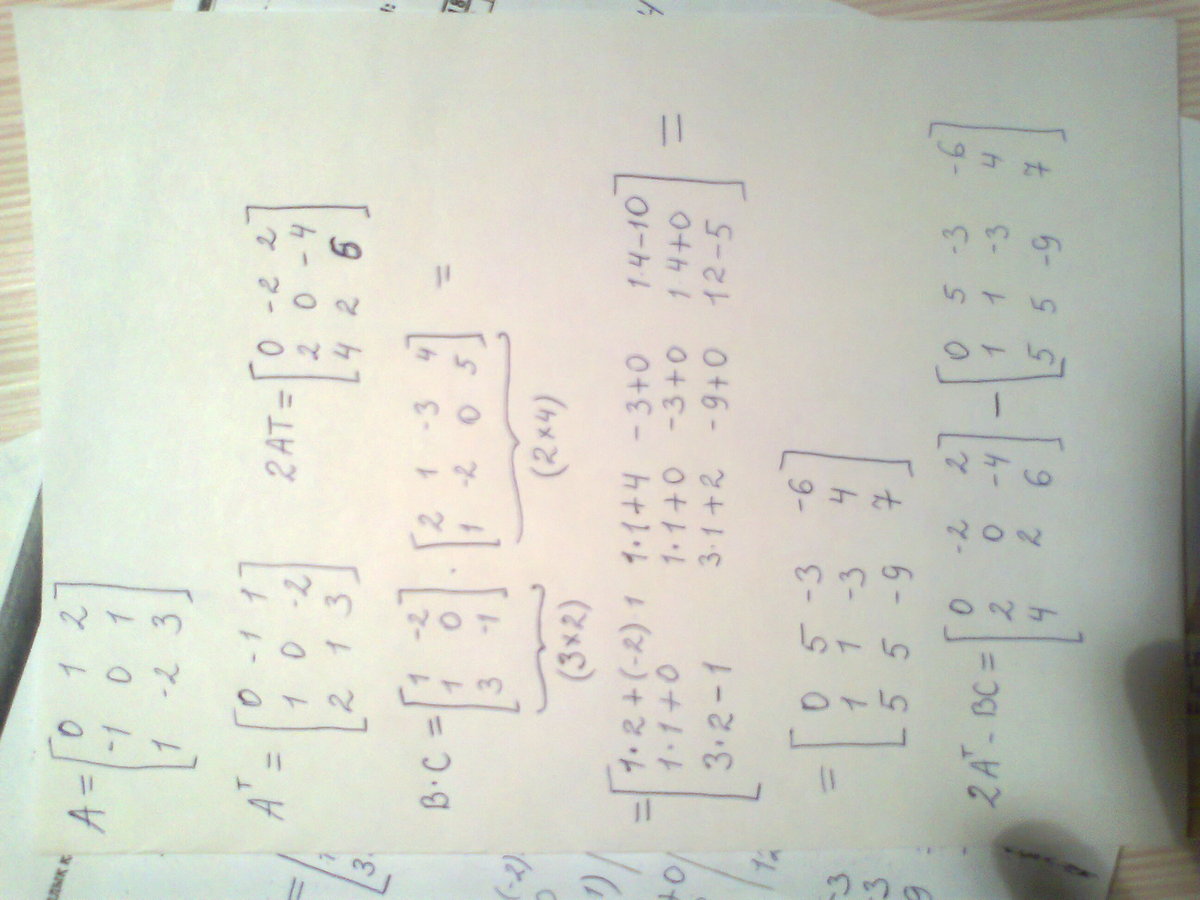 A = [ 0 1 2
-1 0 1
1 -2 3 ]
Aᵀ = [ 0 -1 1
1 0 -2
2 1 3 ]
2AT = [ 0 -2 2
2 0 -4
4 2 6 ]
B·C = [ 1 -2
1 0
3 -1 ] · [ 2 1 -3 4
1 -2 0 5 ] =
(3×2) (2×4)
= [ 1·2+(-2)·1 1·1+4 -3+0 1·4-10
1·1+0 1·1+0 -3+0 1·4+0
3·2-1 3·1+2 -9+0 12-5 ] =
= [ 0 5 -3 -6
1 1 -3 4
5 5 -9 7 ]
2Aᵀ - BC = [ 0 -2 2
2 0 -4
4 2 6 ] - [ 0 5 -3 -6
1 1 -3 4
5 5 -9 7 ]